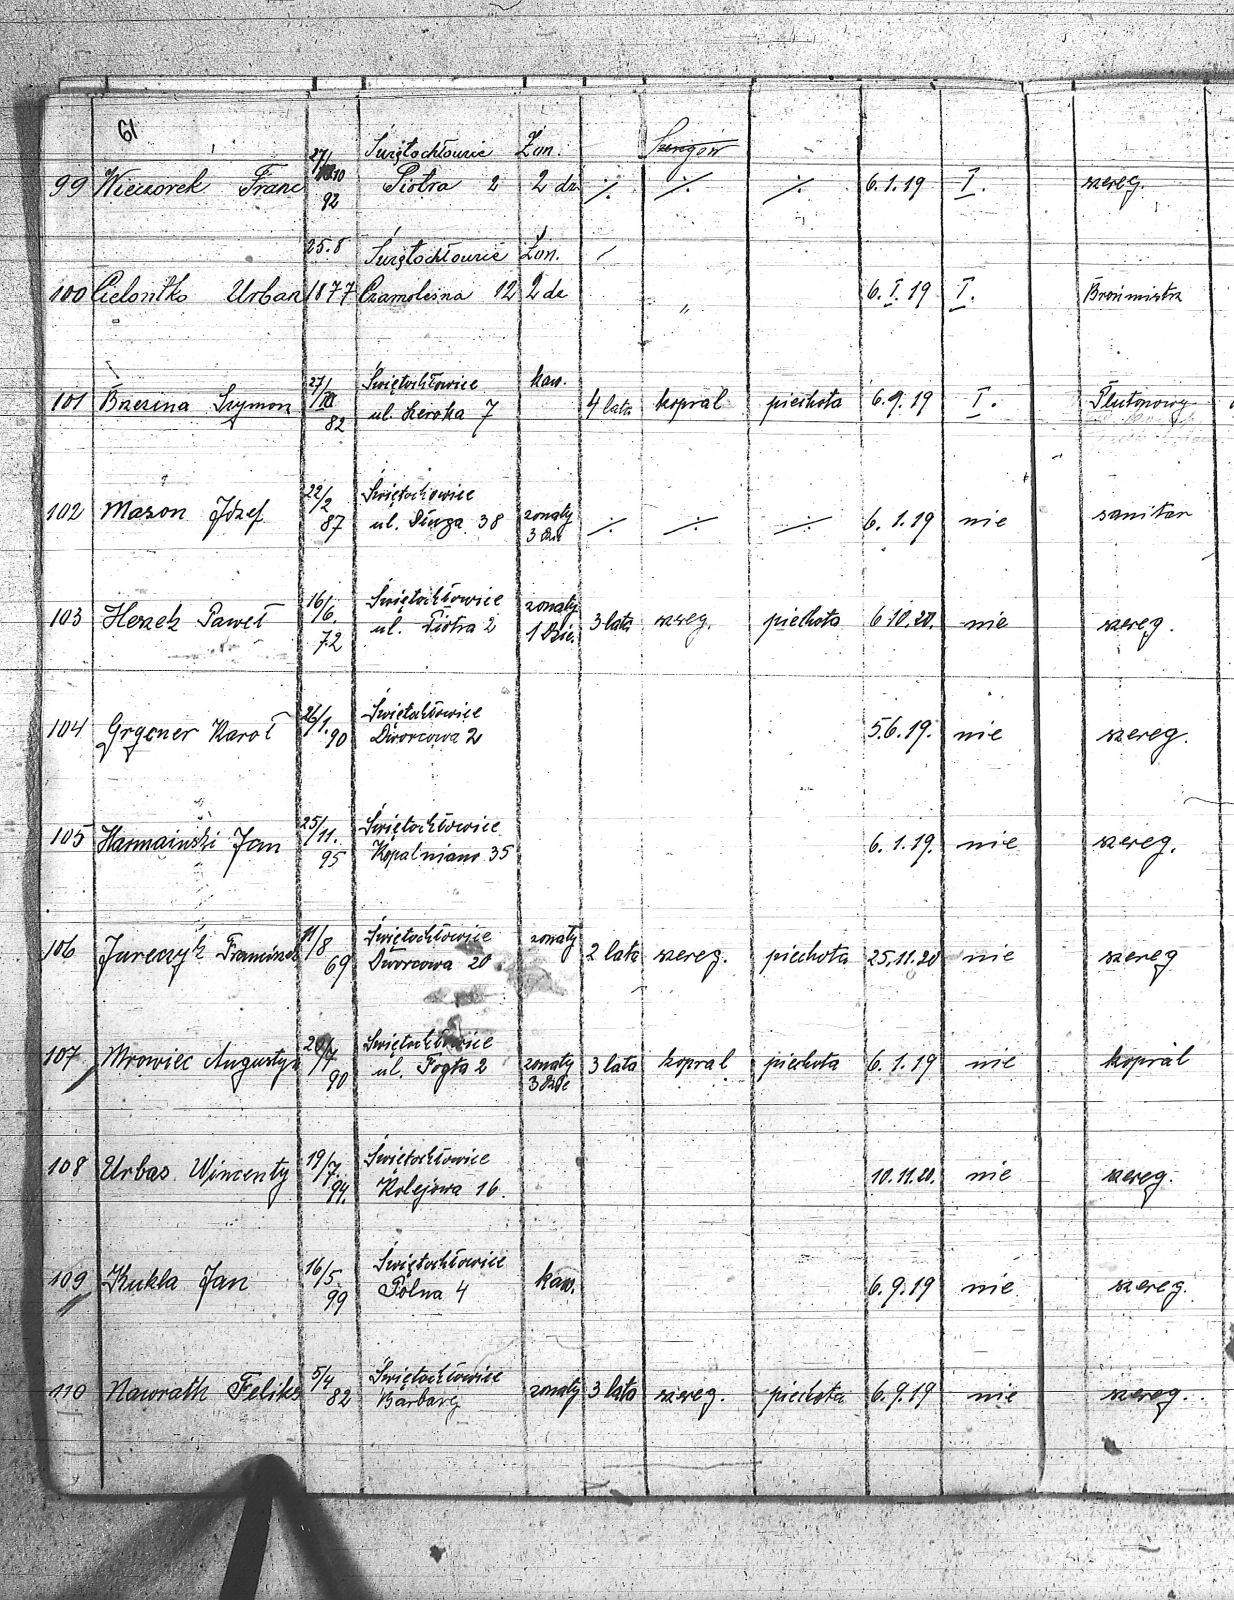 61
27/10 Świętochłowice Żon.
99 Wieczorek Franc 92 Piotra 2 2 dz ·/· ·/· ·/· 6.1.19 I. szereg.
25.8 Świętochłowice Żon.
100 Urban 1877 12 2 dz " 6.I.19 I. Brońmistrz
27/ Świętochłowice kaw.
101 Brzezina Szymon 82 ul. 7 4 lata kopral piechota 6.9.19 I. Plutonowy
22/2 Świętochowice
102 Mazon Józef 87 ul. Długa 38 zonaty 3 ·/· ·/· ·/· 6.1.19 nie sanitar
16/6. Świętochłowice zonaty
103 Paweł 72 ul. Piotra 2 1 3 lata szereg. piechota 6.10.20. nie szereg.
26/1. Świętochłowice
104 Karol 90 Dworcowa 2 5.6.19. nie szereg.
25/11. Świętochłowice
105 Jan 95 35 6.1.19. nie szereg.
11/8 Świętochłowice zonaty
106 Jurczyk 69 Dworcowa 20 2 lata szereg. piechota 25.11.20 nie szereg
Świętochłowice
107 Mrowiec Augustyn 90 ul. 2 zonaty 3 3 lata kopral piechota 6.1.19 nie kopral
19/7. Świętochłowice
108 Urbas Wincenty 94. Kolejowa 16. 10.11.20. nie szereg.
16/5. Świętochłowice
109 Kukla Jan 99 Polna 4 kaw. 6.9.19 nie szereg.
5/4 Świętochłowice
110 Nawrath Feliks 82 Barbary zonaty 3 lata szereg. piechota 6.9.19 nie szereg.